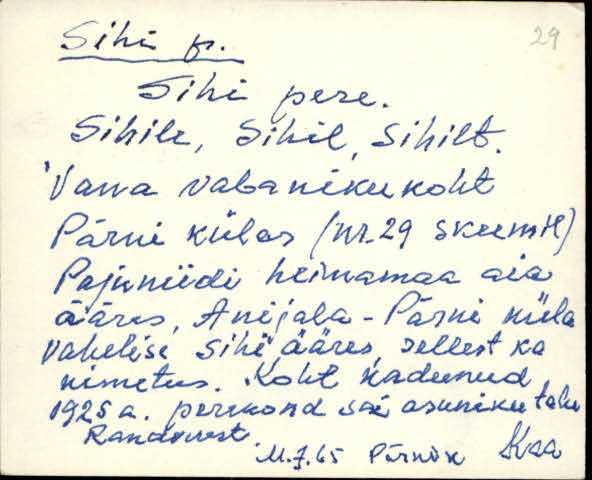 29
Sihi p.
Sihi pere.
Sihile, Sihil, Sihilt.
Vana vabanikukoht
Pärni külas (nr. 29 skeemil)
Pajuniidi heinamaa aia
ääres, Anijala - Pärni küla
vahelise sihi ääres, sellest ka
nimetus. Koht kadunud
1925 a. perekond sai asuniku talu
Randverest.
11.7.65 Pärnis